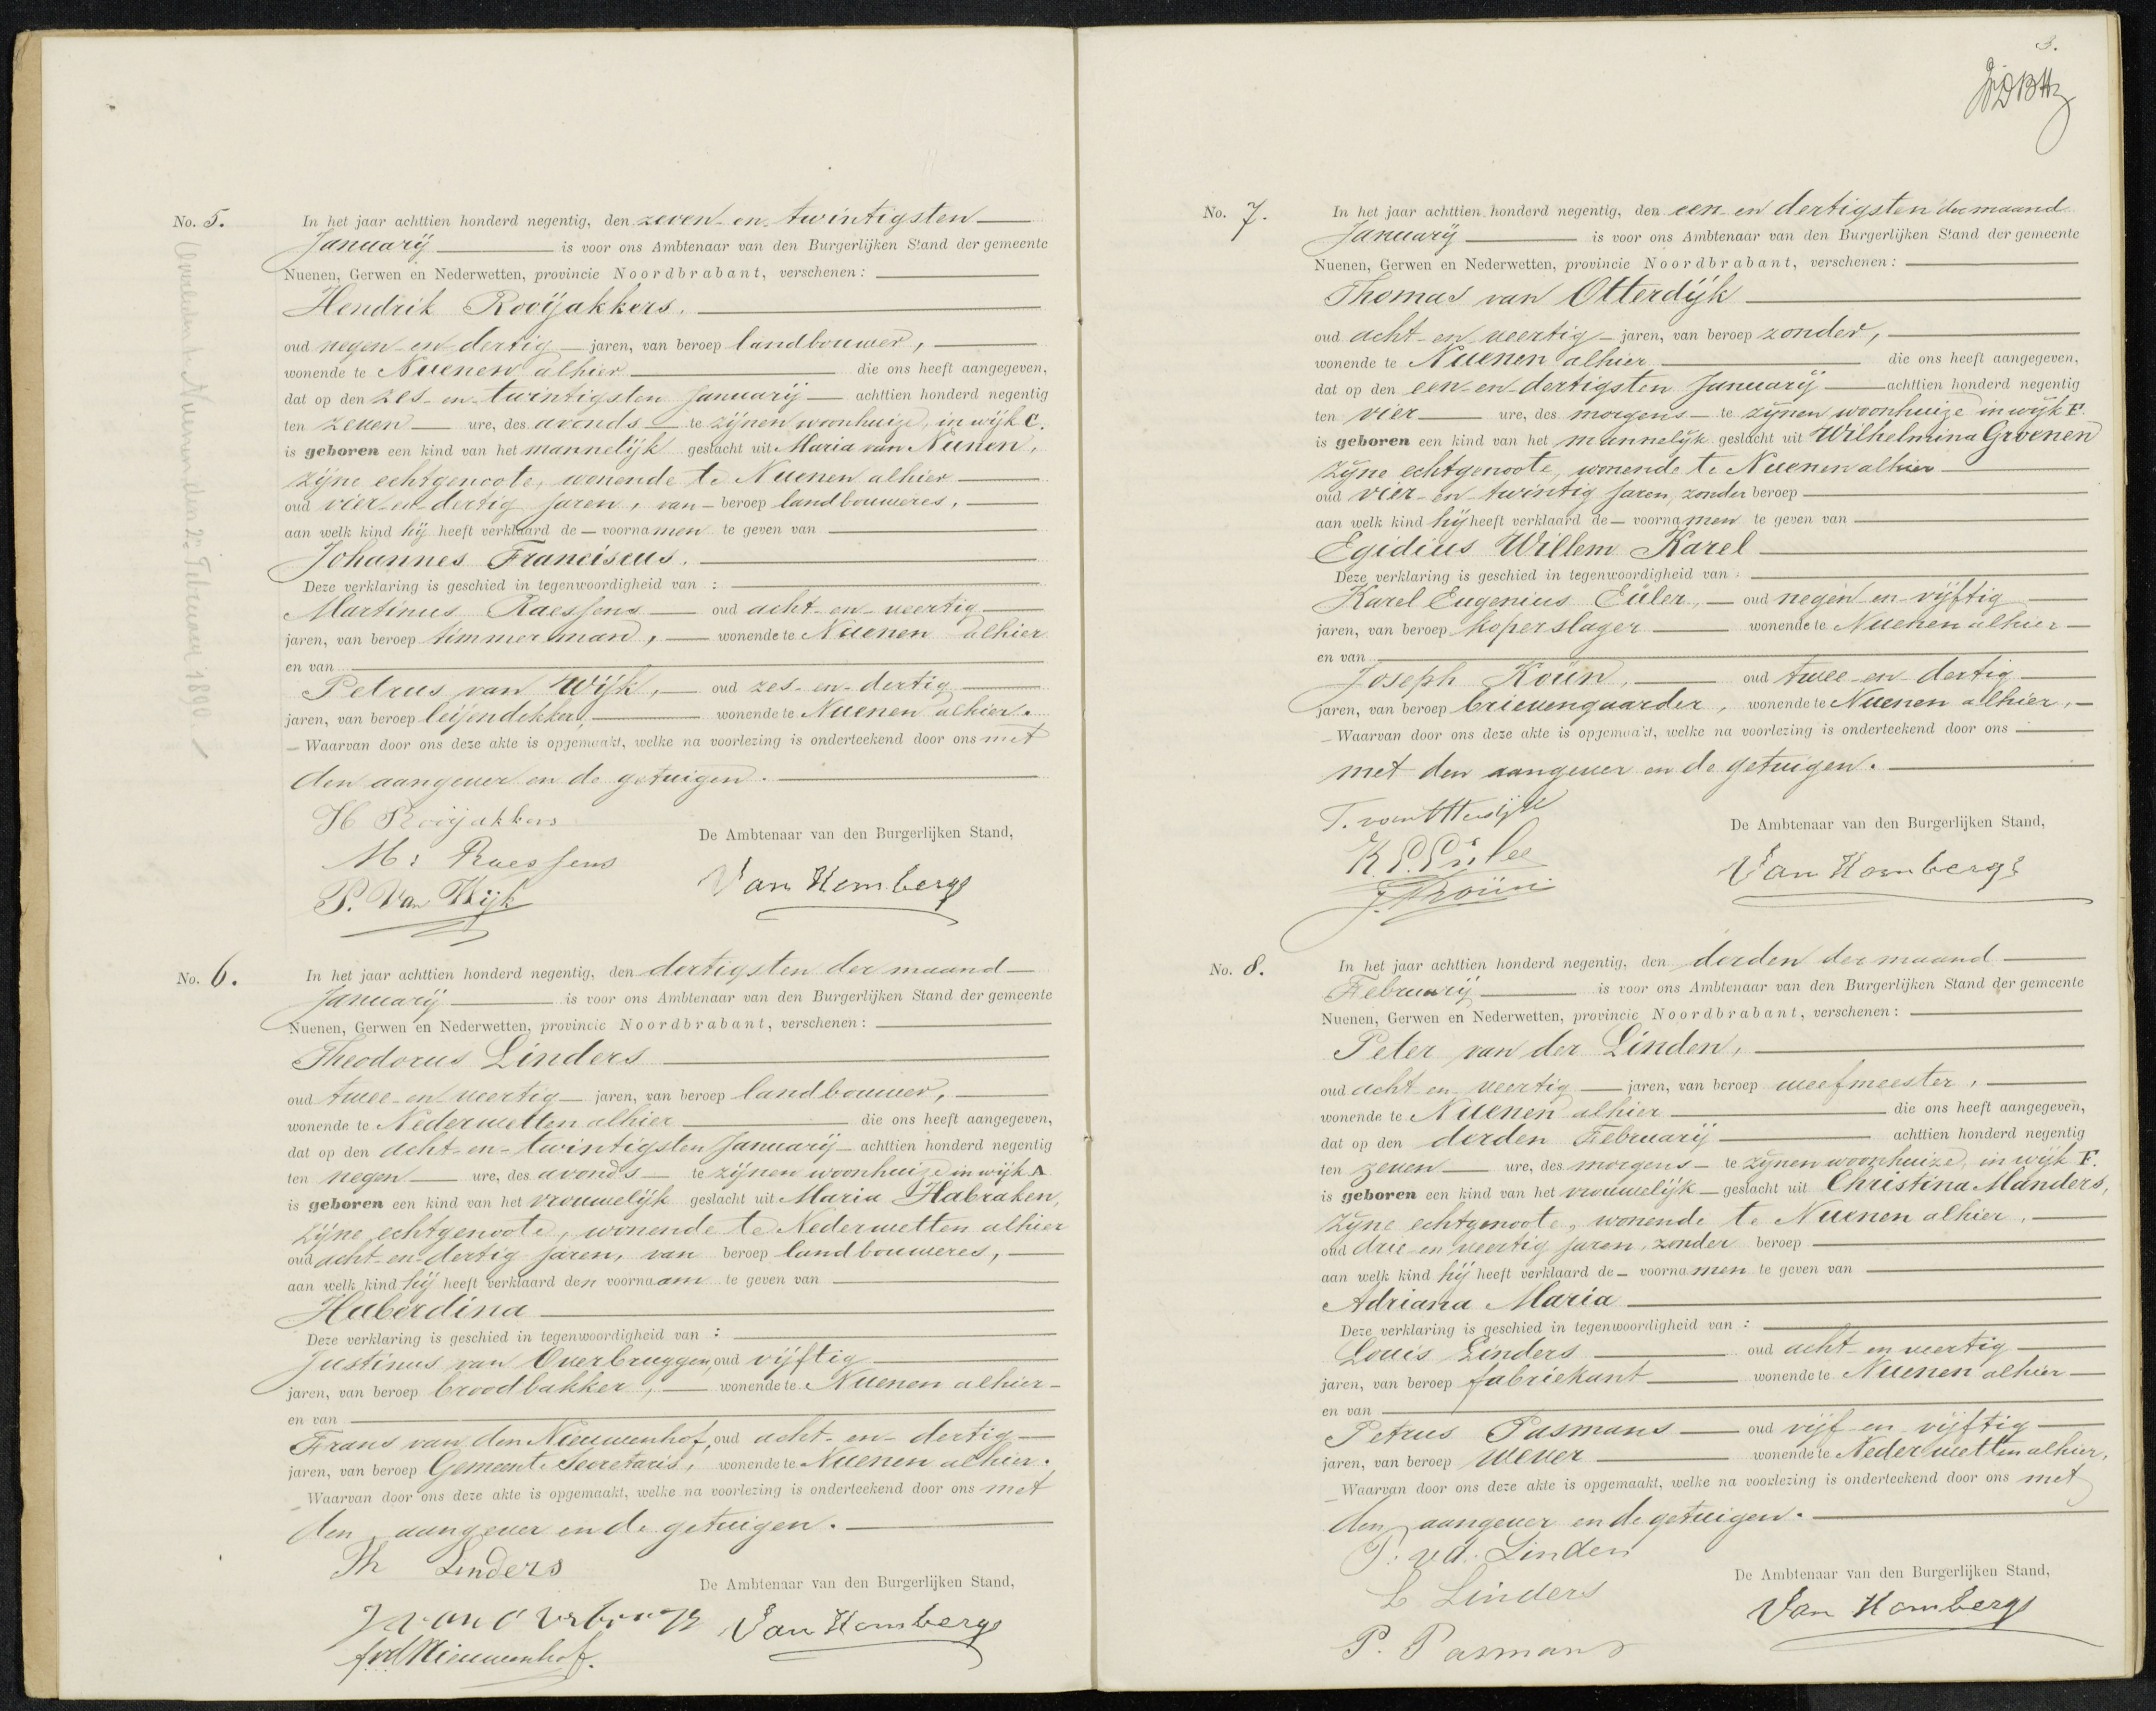 No. 5.
In het jaar achttien honderd negentig, den zeven-en-twintigsten
Januarij is voor ons Ambtenaar van den Burgerlijken Stand der gemeente
Nuenen, Gerwen en Nederwetten, provincie Noordbrabant, verschenen:
Hendrik Rooijakkers.
oud negen-en-dertig jaren, van beroep landbouwer,
wonende te Nuenen alhier die ons heeft aangegeven,
dat op den zes-en-twintigsten Januarij achttien honderd negentig
ten zeven ure, des avonds te zijnen woonhuize, in wijk C.
is geboren een kind van het mannelijk geslacht uit Maria van Nunen,
zijne echtgenoote, wonende te Nuenen alhier
oud vier-en-dertig jaren, van beroep landbouweres,
aan welk kind hij heeft verklaard de voornamen te geven van
Johannes Franciscus.
Deze verklaring is geschied in tegenwoordigheid van :
Martinus Raessens oud acht-en-veertig
jaren, van beroep timmerman, wonende te Nuenen alhier
en van
Petrus van Wijk, oud zes-en-dertig
jaren, van beroep leijendekker, wonende te Nuenen alhier.
Waarvan door ons deze akte is opgemaakt, welke na voorlezing is onderteekend door ons met
den aangever en de getuigen.
H Rooijakkers
De Ambtenaar van den Burgerlijken Stand,
M: Raessens
Van Hombergh
P. Van Wijk
Overleden te Nuenen den 2n Februari 1890.
No. 6.
In het jaar achttien honderd negentig, den dertigsten der maand
Januarij is voor ons Ambtenaar van den Burgerlijken Stand der gemeente
Nuenen, Gerwen en Nederwetten, provincie Noordbrabant, verschenen:
Theodorus Linders
oud twee-en-veertig jaren, van beroep landbouwer,
wonende te Nederwetten alhier die ons heeft aangegeven,
dat op den acht-en-twintigsten Januarij achttien honderd negentig
ten negen ure, des avonds te zijnen woonhuize in wijk A
is geboren een kind van het vrouwelijk geslacht uit Maria Habraken,
zijne echtgenoote, wonende te Nederwetten alhier
oud acht-en-dertig jaren, van beroep landbouweres,
aan welk kind hij heeft verklaard den voornaam te geven van
Huberdina
Deze verklaring is geschied in tegenwoordigheid van :
Justinus van Overbruggen, oud vijftig
jaren, van beroep broodbakker, wonende te Nuenen alhier
en van
Frans van den Nieuwenhof, oud acht-en-dertig
jaren, van beroep Gemeente Secretaris, wonende te Nuenen alhier.
Waarvan door ons deze akte is opgemaakt, welke na voorlezing is onderteekend door ons met
den aangever en de getuigen.
Th Linders
De Ambtenaar van den Burgerlijken Stand,
Van Hombergh
fvdNieuwenhof.
3.
No. 7.
In het jaar achttien honderd negentig, den een en dertigsten der maand
Januarij is voor ons Ambtenaar van den Burgerlijken Stand der gemeente
Nuenen, Gerwen en Nederwetten, provincie Noordbrabant, verschenen:
Thomas van Otterdijk
oud acht-en veertig jaren, van beroep zonder,
wonende te Nuenen alhier die ons heeft aangegeven,
dat op den een-en-dertigsten Januarij achttien honderd negentig
ten vier ure, des morgens te zijnen woonhuize in wijk F.
is geboren een kind van het mannelijk geslacht uit Wilhelmina Groenen
zijne echtgenoote, wonende te Nuenen alhier
oud vier-en-twintig jaren, zonder beroep
aan welk kind hij heeft verklaard de voornamen te geven van
Egidius Willem Karel
Deze verklaring is geschied in tegenwoordigheid van :
Karel Eugenius Euler, oud negen-en-vijftig
jaren, van beroep koperslager wonende te Nuenen alhier
en van
Joseph Koün, oud twee-en-dertig
jaren, van beroep brievengaarder, wonende te Nuenen alhier,
Waarvan door ons deze akte is opgemaakt, welke na voorlezing is onderteekend door ons
met den aangever en de getuigen.
T. van Otterdijk
De Ambtenaar van den Burgerlijken Stand,
Van Hombergh
No. 8.
In het jaar achttien honderd negentig, den derden der maand
Februarij is voor ons Ambtenaar van den Burgerlijken Stand der gemeente
Nuenen, Gerwen en Nederwetten, provincie Noordbrabant, verschenen:
Peter van der Linden,
oud acht-en-veertig jaren, van beroep weefmeester,
wonende te Nuenen alhier die ons heeft aangegeven,
dat op den derden Februarij achttien honderd negentig
ten zeven ure, des morgens te zijnen woonhuize, in wijk F.
is geboren een kind van het vrouwelijk geslacht uit Christina Manders,
zijne echtgenoote, wonende te Nuenen alhier,
oud drie-en-veertig jaren, zonder beroep
aan welk kind hij heeft verklaard de voornamen te geven van
Adriana Maria
Deze verklaring is geschied in tegenwoordigheid van :
Louis Linders oud acht-en veertig
jaren, van beroep fabriekant wonende te Nuenen alhier
en van
Petrus Pasmans oud vijf-en vijftig
jaren, van beroep wever wonende te Nederwetten alhier,
Waarvan door ons deze akte is opgemaakt, welke na voorlezing is onderteekend door ons met
den aangever en de getuigen.
P. v.d. Linden
De Ambtenaar van den Burgerlijken Stand,
L Linders
Van Hombergh
P. Pasmans